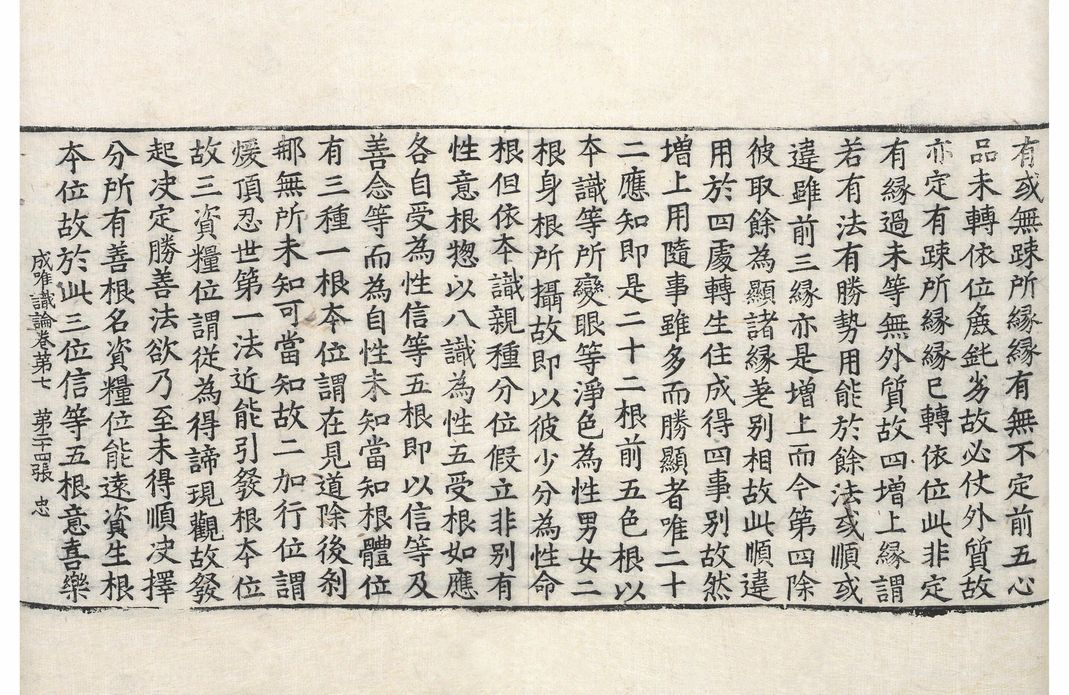 有或無踈所縁縁有無不定前五心
品未轉依位麁鈍劣故必仗外質故
亦定有踈所縁縁已轉依位此非定
有縁過未等無外質故四增上縁謂
若有法有勝勢用能於餘法或順或
違雖前三縁亦是增上而今第四除
彼取餘為顯諸縁差别相故此順違
用於四處轉生住成得四事别故然
增上用隨事雖多而勝顯者唯二十
二應知即是二十二根前五色根以
本識等所變眼等淨色為性男女二
根身根所攝故即以彼少分為性命
根但依本識親種分位假立非别有
性意根惣以八識為性五受根如應
各自受為性信等五根即以信等及
善念等而為自性未知當知根體位
有三種一根本位謂在見道除後刹
那無所未知可當知故二加行位謂
煖頂忍世第一法近能引發根本位
故三資糧位謂従為得諦現觀故發
起决定勝善法欲乃至未得順决擇
分所有善根名資糧位能遠資生根
本位故於此三位信等五根意喜樂
成唯識論卷第七 第二十四張 忠